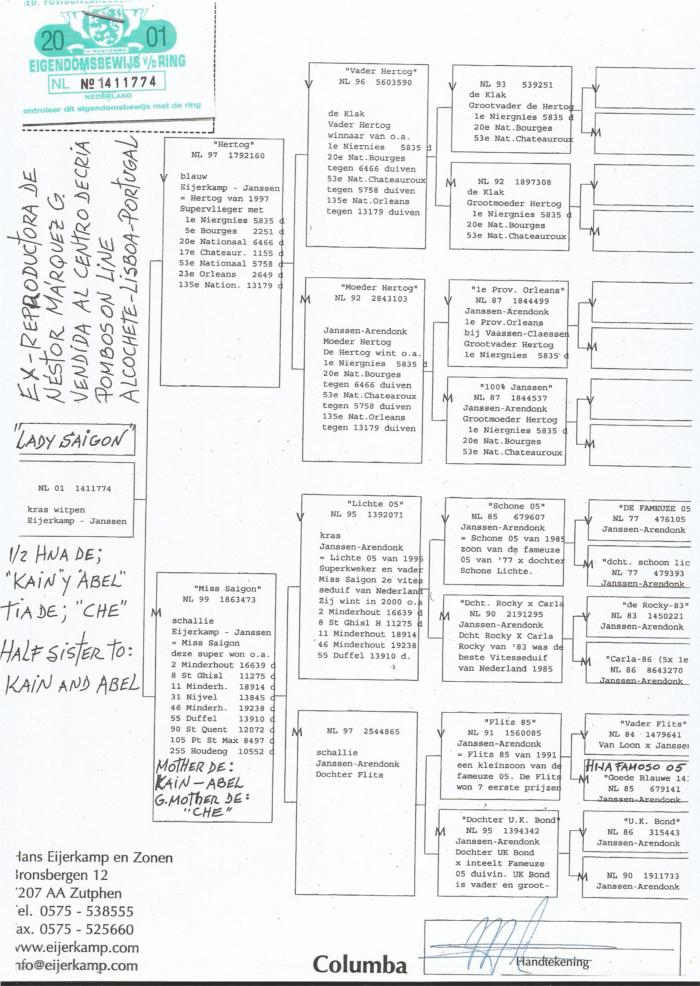 20 01
EIGENDOMSBEWIJS v/d RING
NL Nº 1411774
NEDERLAND
ontroleer dit eigendomsbewijs met de ring
EX-REPRODUCTORA DE
NÉSTOR MÁRQUEZ G.
VENDIDA AL CENTRO DE CRIA
POMBOS ON LINE
ALCOCHETE-LISBOA-PORTUGAL
"LADY SAIGON"
NL 01 1411774
kras witpen
Eijerkamp - Janssen
1/2 HNA DE;
"KAIN" Y ABEL"
TIA DE; "CHE"
HALF SISTER TO:
KAIN AND ABEL
"Hertog"
NL 97 1792160
V
blauw
Eijerkamp - Janssen
= Hertog van 1997
Supervlieger met
1e Niergnies 5835 d
5e Bourges 2251 d
20e Nationaal 6466 d
17e Chateaur. 1155 d
53e Nationaal 5758 d
23e Orleans 2649 d
135e Nation. 13179 d
"Miss Saigon"
NL 99 1863473
M
schallie
Eijerkamp - Janssen
= Miss Saigon
deze super won o.a.
2 Minderhout 16639 d
8 St Ghisl 11275 d
11 Minderh. 18914 d
31 Nijvel 13845 d
46 Minderh. 19238 d
55 Duffel 13910 d
90 St Quent 12072 d
105 Pt St Max 8497 d
255 Houdeng 10552 d
MOTHER DE:
KAIN-ABEL
G.MOTHER DE:
"CHE"
"Vader Hertog"
NL 96 5603590
V
de Klak
Vader Hertog
winnaar van o.a.
1e Niernies 5835 d
20e Nat.Bourges
tegen 6466 duiven
53e Nat.Chateauroux
tegen 5758 duiven
135e Nat.Orleans
tegen 13179 duiven
"Moeder Hertog"
M NL 92 2843103
Janssen-Arendonk
Moeder Hertog
De Hertog wint o.a.
1e Niergnies 5835 d
20e Nat.Bourges
tegen 6466 duiven
53e Nat.Chatearoux
tegen 5758 duiven
135e Nat.Orleans
tegen 13179 duiven
"Lichte 05"
NL 95 1392071
V
kras
Janssen-Arendonk
= Lichte 05 van 1995
Superkweker en vader
Miss Saigon 2e vites
seduif van Nederland
Zij wint in 2000 o.a
2 Minderhout 16639 d
8 St Ghisl H 11275 d
11 Minderhout 18914
46 Minderhout 19238
55 Duffel 13910 d.
M NL 97 2544865
schallie
Janssen-Arendonk
Dochter Flits
V NL 93 539251
de Klak
Grootvader de Hertog
1e Niergnies 5835 d
20e Nat.Bourges
53e Nat.Chateauroux
M NL 92 1897308
de Klak
Grootmoeder Hertog
1e Niergnies 5835 d
20e Nat.Bourges
53e Nat.Chateauroux
"1e Prov. Orleans"
V NL 87 1844499
Janssen-Arendonk
1e Prov.Orleans
bij Vaassen-Claessen
Grootvader Hertog
1e Niergnies 5835 d
"100% Janssen"
M NL 87 1844537
Janssen-Arendonk
Grootmoeder Hertog
1e Niergnies 5835 d
20e Nat.Bourges
53e Nat.Chateaurox
"Schone 05"
V NL 85 679607
Janssen-Arendonk
= Schone 05 van 1985
zoon van de fameuze
05 van '77 x dochter
Schone Lichte.
"Dcht. Rocky x Carla
M NL 90 2191295
Janssen-Arendonk
Dcht Rocky X Carla
Rocky van '83 was de
beste Vitesseduif
van Nederland 1985
"Flits 85"
V NL 91 1560085
Janssen-Arendonk
= Flits 85 van 1991
een kleinzoon van de
fameuze 05. De Flits
won 7 eerste prijzen
"Dochter U.K. Bond"
M NL 95 1394342
Janssen-Arendonk
Dochter UK Bond
x inteelt Fameuze
05 duivin. UK Bond
is vader en groot-
V
M
V
M
V
M
V
M
"DE FAMEUZE 05
V NL 77 476105
Janssen-Arendonk
"dcht. schoon lic
M NL 77 479393
Janssen-Arendonk
"de Rocky-83"
V NL 83 1450221
Janssen-Arendonk
"Carla-86 (5x 1e
M NL 86 8643270
Janssen-Arendonk
"Vader Flits"
V NL 84 1479641
Van Loon x Janssen
HNA FAMOSO 05
"Goede Blauwe 14
M NL 85 679141
Janssen-Arendonk
"U.K. Bond"
V NL 86 315443
Janssen-Arendonk
M NL 90 1911733
Janssen-Arendonk
Hans Eijerkamp en Zonen
Bronsbergen 12
7207 AA Zutphen
Tel. 0575 - 538555
Fax. 0575 - 525660
www.eijerkamp.com
info@eijerkamp.com
Columba
Handtekening